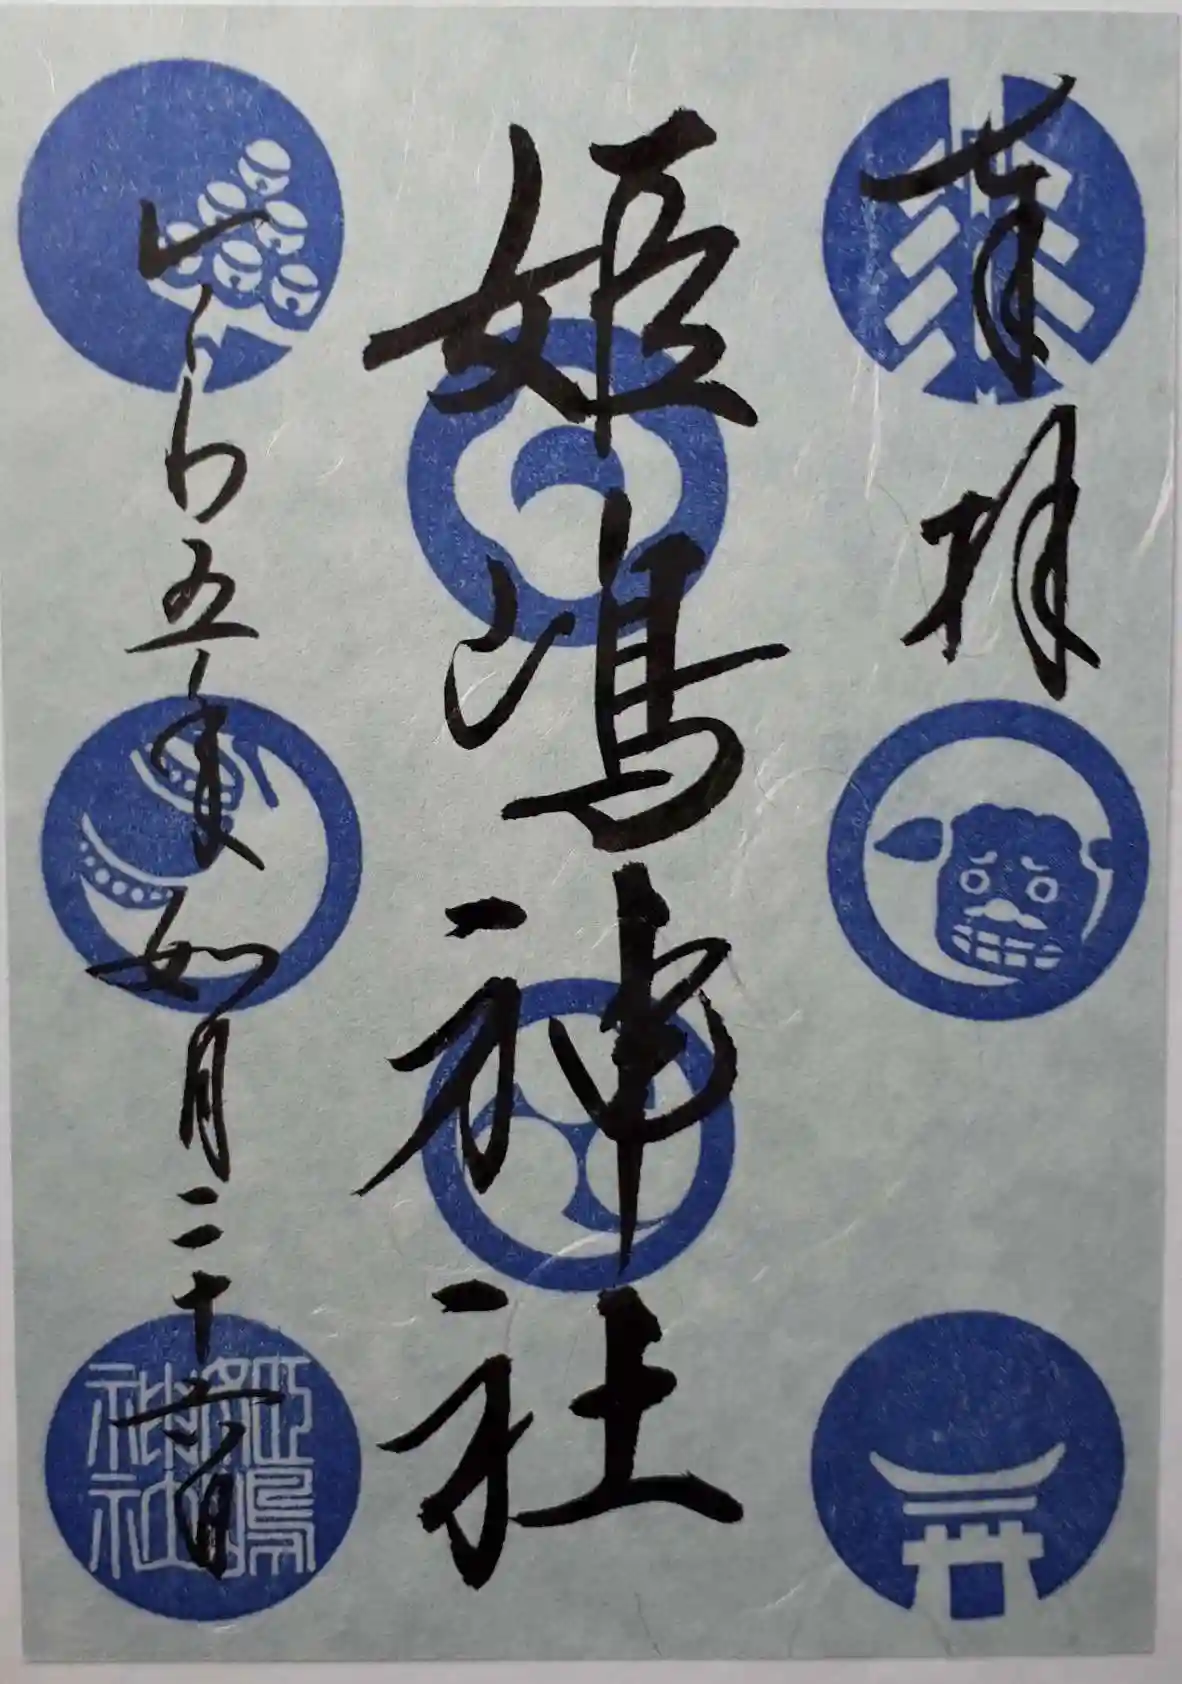 奉拝
姫嶋神社
令和五年如月二十六日
姫嶋
神社